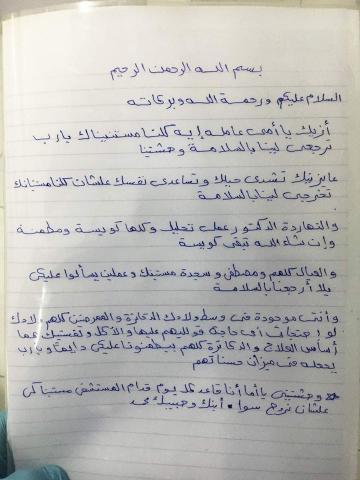 بسم الله الرحمن الرحيم
السلام عليكم ورحمة الله وبركاته
أزيك يا أمى عامله إيه كلنا مستنينك يارب
ترجعى لينا بالسلامة وحشتينا
عايزينك تشدى حيلك وتساعدى نفسك علشان كلنا مستنينك
تخرجى لينا بالسلامة
والنهاردة الدكتور عمل تحليل وكلها كويسة ومطمنه
وإن شاء الله تبقى كويسة
والعيال كلهم ومصطفى وسجدة مستنينك وعمالين يسألوا عليكى
يلا أرجعى بالسلامة
وأنتى موجودة فى وسط ولادك الدكاترة والممرضين كلهم ولادك
لو احتجات أى حاجة قوليلهم عليها والأكل ونفسيتك هما
أساس العلاج والدكاترة كلهم بيطمنونا عليكى دايما ويارب
يجعله فى ميزان حسناتهم
وحشتينى ياما أنا قاعد كل يوم قدام المستشفى مستنياكى
علشان نروح سوا. أبنك وحبيبك محمد